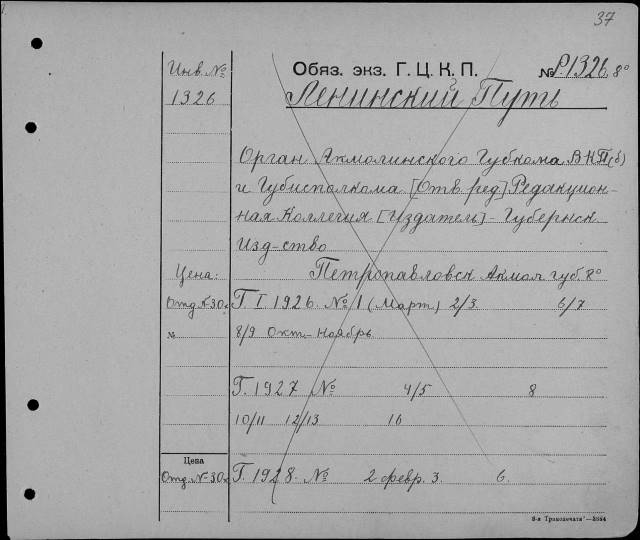 37
Инв. №
1326
Обяз. экз. Г. Ц. К. П.
№ Р1326 8°
Ленинский Путь
Орган Акмолинского Губкома ВКП(б)
и Губисполкома [Отв. ред] Редакцион-
ная Коллегия [Издатель] - Губернск
Изд-ство
Цена:
Петропавловск Акмол губ. 8°
Отд. № 30к
Г. I 1926. № 1 (Март) 2/3. 6/7
№
8/9 Окт- Ноябрь
Г. 1927 № 4/5 8
10/11 12/13 16
Цена
Отд. № 30к
Г. 1928. № 2 февр. 3. 6.